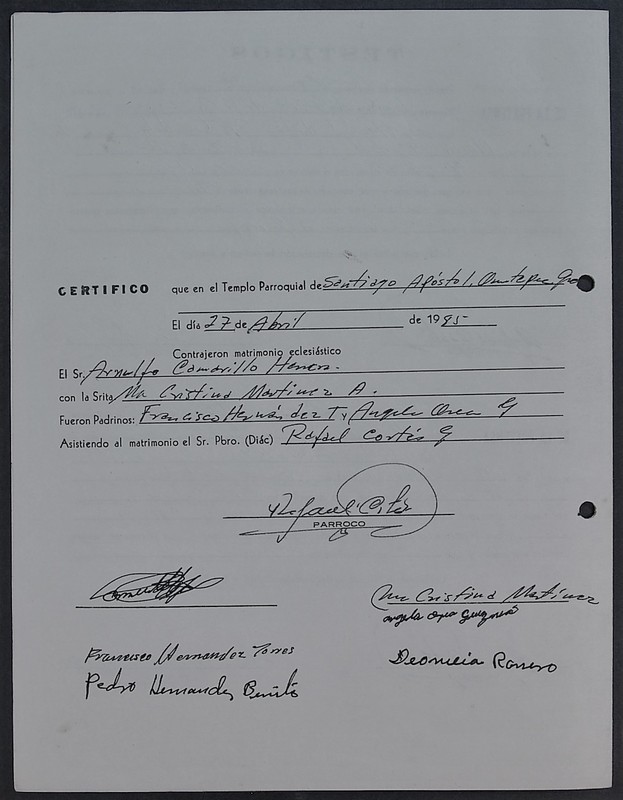 CERTIFICO que en el Templo Parroquial de Santiago Apóstol, Ometepec Gro
El día 27 de Abril de 1995
Contrajeron matrimonio eclesiástico
El Sr. Arnulfo Camarillo Herrera.
con la Srita Ma Cristina Martinez A.
Fueron Padrinos: Francisco Hernández T y Angela Orea G
Asistiendo al matrimonio el Sr. Pbro. (Diác) Rafael Cortés G
Rafael
PARROCO
Ma Cristina Martínez
angela Orea Guzmán
Francisco Hernandez Torres
Romero
Pedro Hernandez Benito